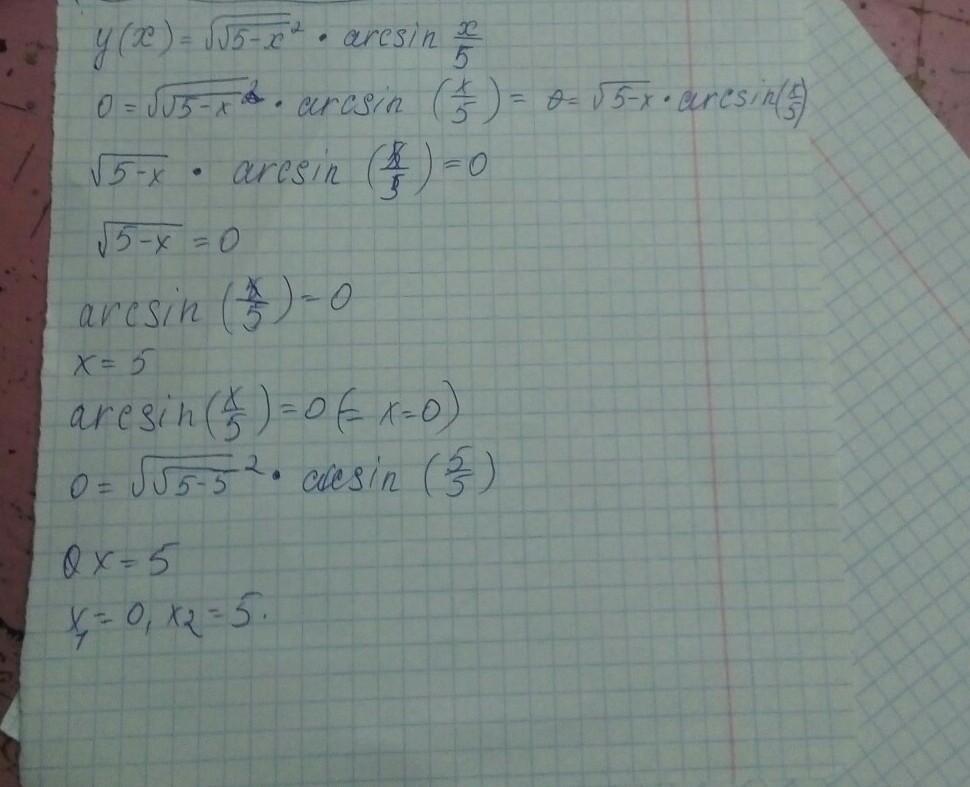 y(x) = √√5-x² · arcsin x/5
0 = √√5-x² · arcsin (x/5) = 0 = √5-x · arcsin(x/5)
√5-x · arcsin (x/5) = 0
√5-x = 0
arcsin (x/5) = 0
x = 5
arcsin (x/5) = 0 (= x=0)
0 = √√5-5² · arcsin (5/5)
x = 5
x₁ = 0, x₂ = 5.